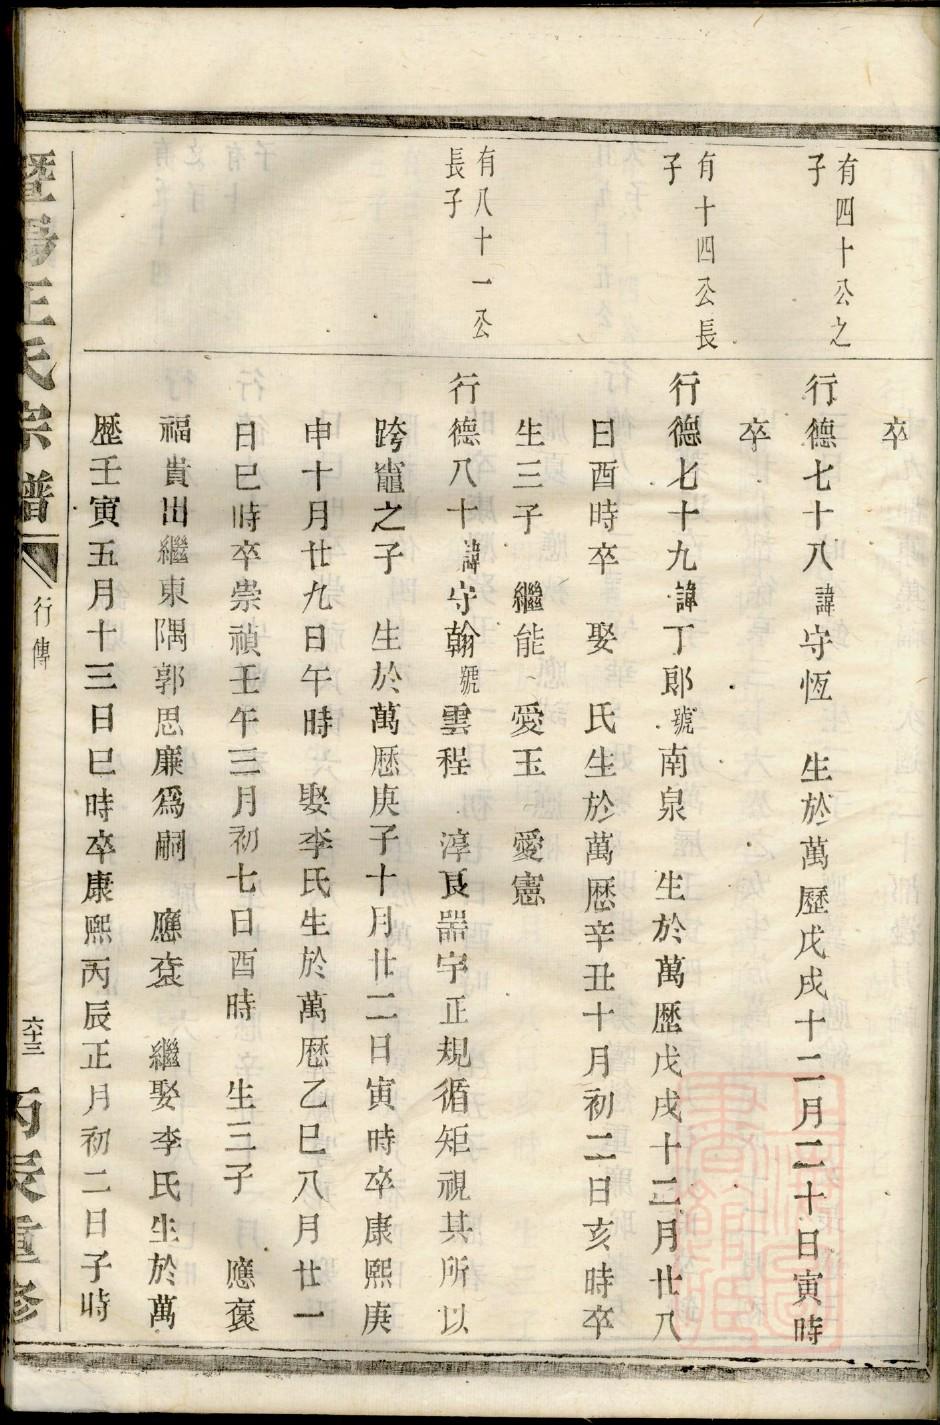 卒
有四十公之
子
行德七十八諱守恆　生於萬歷戊戌十二月二十日寅時
卒
有十四公長
子
行德七十九諱丁郎號南泉　生於萬歷戊戌十二月廿八
日酉時卒　娶　氏生於萬歷辛丑十月初二日亥時卒
生三子　繼能　愛玉　愛憲
有八十一公
長子
行德八十諱守翰號雲程　淳良器宇正規循矩視其所以
跨竈之子　生於萬歷庚子十月廿二日寅時卒康熙庚
申十月廿九日午時　娶李氏生於萬歷乙巳八月廿一
日巳時卒崇禎壬午三月初七日酉時　生三子　應襃
福貴出繼東隅郭思廉爲嗣　應袞　繼娶李氏生於萬
歷壬寅五月十三日巳時卒康熙丙辰正月初二日子時
暨陽王氏宗譜
行傳
六十三
丙辰重修